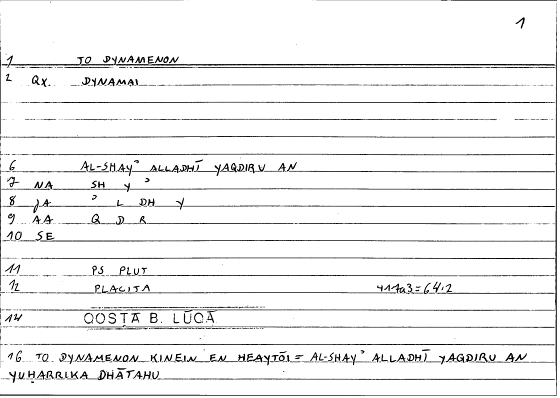 1
1 TO DYNAMENON
2 QX. DYNAMAI
6 AL-SHAYʾ ALLADHĪ YAQDIRU AN
7 NA SH Y ʾ
8 JA ʾ L DH Y
9 AA Q D R
10 SE
11 PS PLUT
12 PLACITA 417a3=64.2
14 QOSṬĀ B. LŪQĀ
16 TO DYNAMENON KINEIN EN HEAYTŌI = AL-SHAYʾ ALLADHĪ YAQDIRU AN
YUḤARRIKA DHĀTAHU